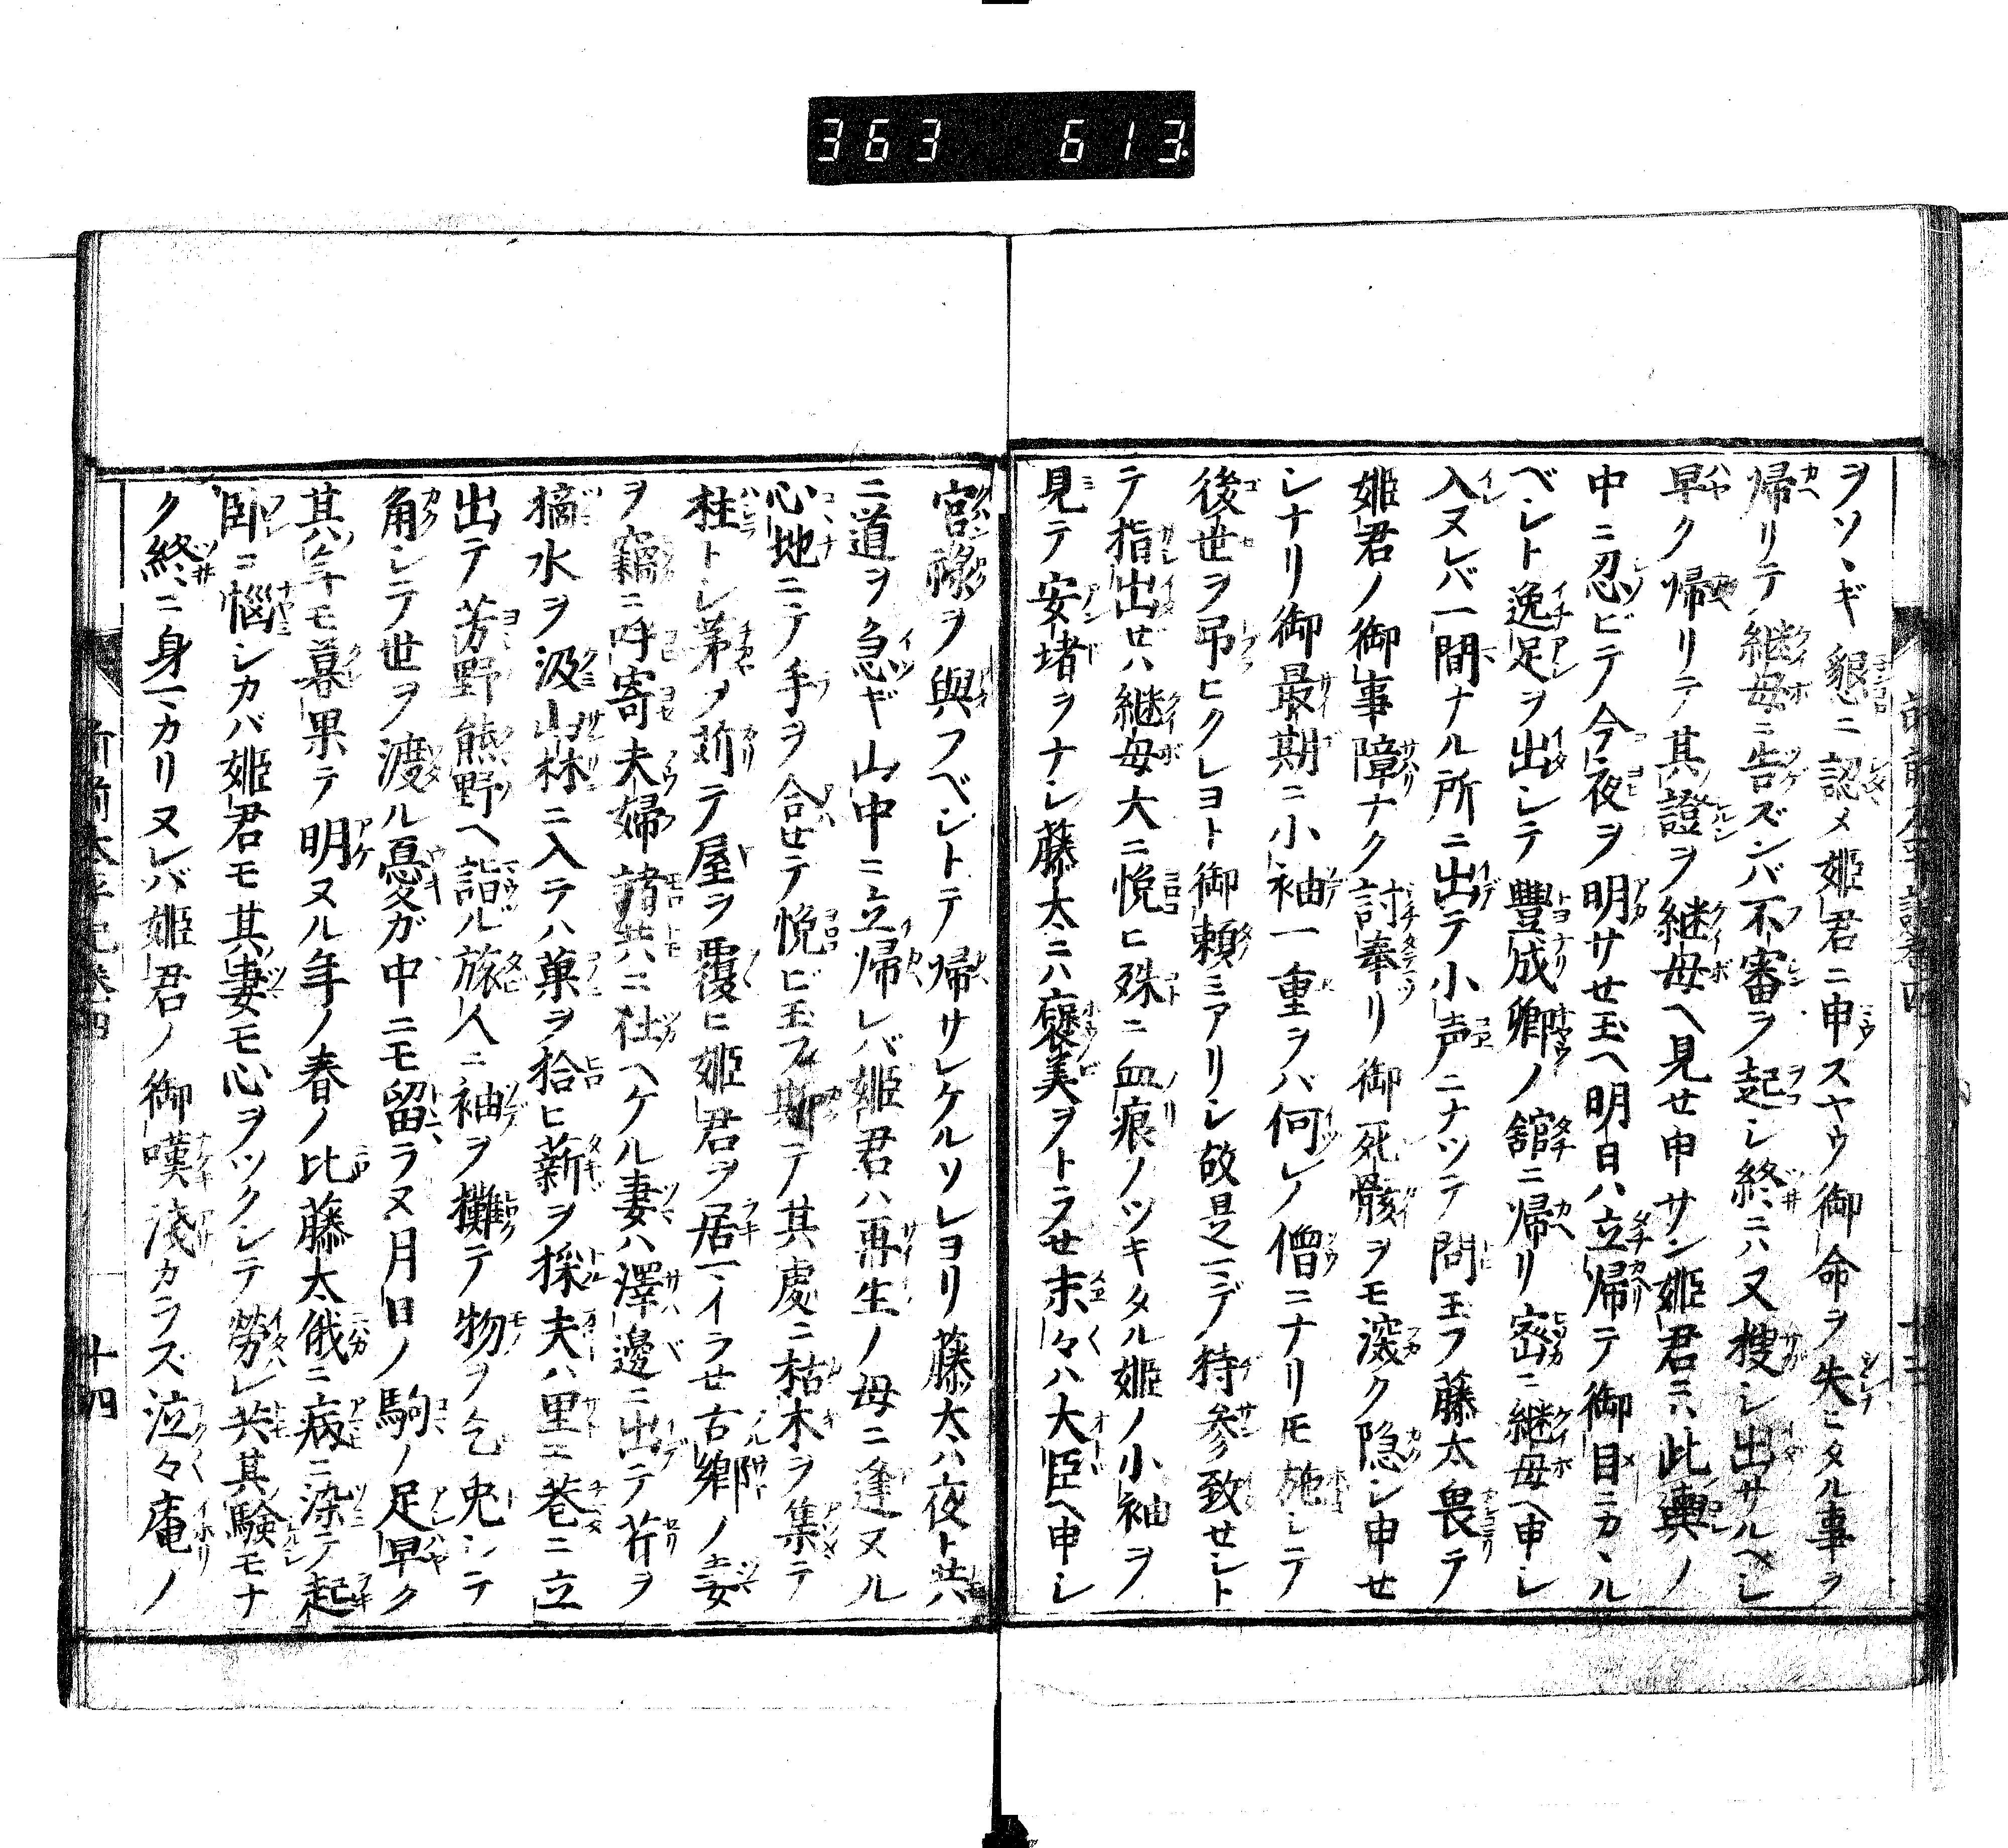 363 613
ヲソヽギ懇ニ認メ姫君ニ申スヤウ御命ヲ失ニタル事ヲ
帰リテ継母ニ告ズンバ不審ヲ起シ終ニハ又捜シ出サルヘシ
早ク帰リテ其證ヲ継母ヘ見セ申サン姫君ニハ此輿ノ
中ニ忍ビテ今夜ヲ明サセ玉ヘ明日ハ立帰テ御目ニカヽル
ベシト逸足ヲ出シテ豊成卿ノ舘ニ帰リ密ニ継母ヘ申シ
入ヌレバ一間ナル所ニ出テ小声ニナツテ問玉フ藤太畏テ
姫君ノ御事障ナク討奉リ御死骸ヲモ深ク隠シ申セ
シナリ御最期ニ小袖一重ヲバ何レノ僧ニナリモ施シテ
後世ヲ吊ヒクレヨト御頼ミアリシ故是マデ持参致セシト
テ指出セハ継母大ニ悦ヒ殊ニ血痕ノツキタル姫ノ小袖ヲ
見テ安堵ヲナシ藤太ニハ褒美ヲトラセ末々ハ大臣ヘ申シ
宮禄ヲ與フベシトテ帰サレケルソレヨリ藤太ハ夜ト共
ニ道ヲ急ギ山中ニ立帰レバ姫君ハ再生ノ母ニ逢ヌル
心地ニテ手ヲ合セテ悦ビ玉フ斯テ其處ニ枯木ヲ集テ
柱トシ茅ヲ苅テ屋ヲ覆ヒ姫君ヲ居マイラセ古郷ノ妻
ヲ竊ニ呼寄夫婦諸共ニ仕ヘケル妻ハ澤邊ニ出テ芹ヲ
摘水ヲ汲山林ニ入テハ菓ヲ拾ヒ薪ヲ採夫ハ里エ巷ニ立
出テ芳野熊野ヘ詣ル旅人ニ袖ヲ擴テ物ヲ乞兎シテ
角シテ世ヲ渡ル憂ガ中ニモ留ラヌ月日ノ駒ノ足早ク
其年モ暮果テ明ヌル年ノ春ノ比藤太俄ニ病ニ染テ起
臥ニ悩シカバ姫君モ其妻モ心ヲツクシテ勞レ共其験モナ
ク終ニ身マカリヌレバ姫君ノ御嘆淺カラズ泣々庵ノ
十四